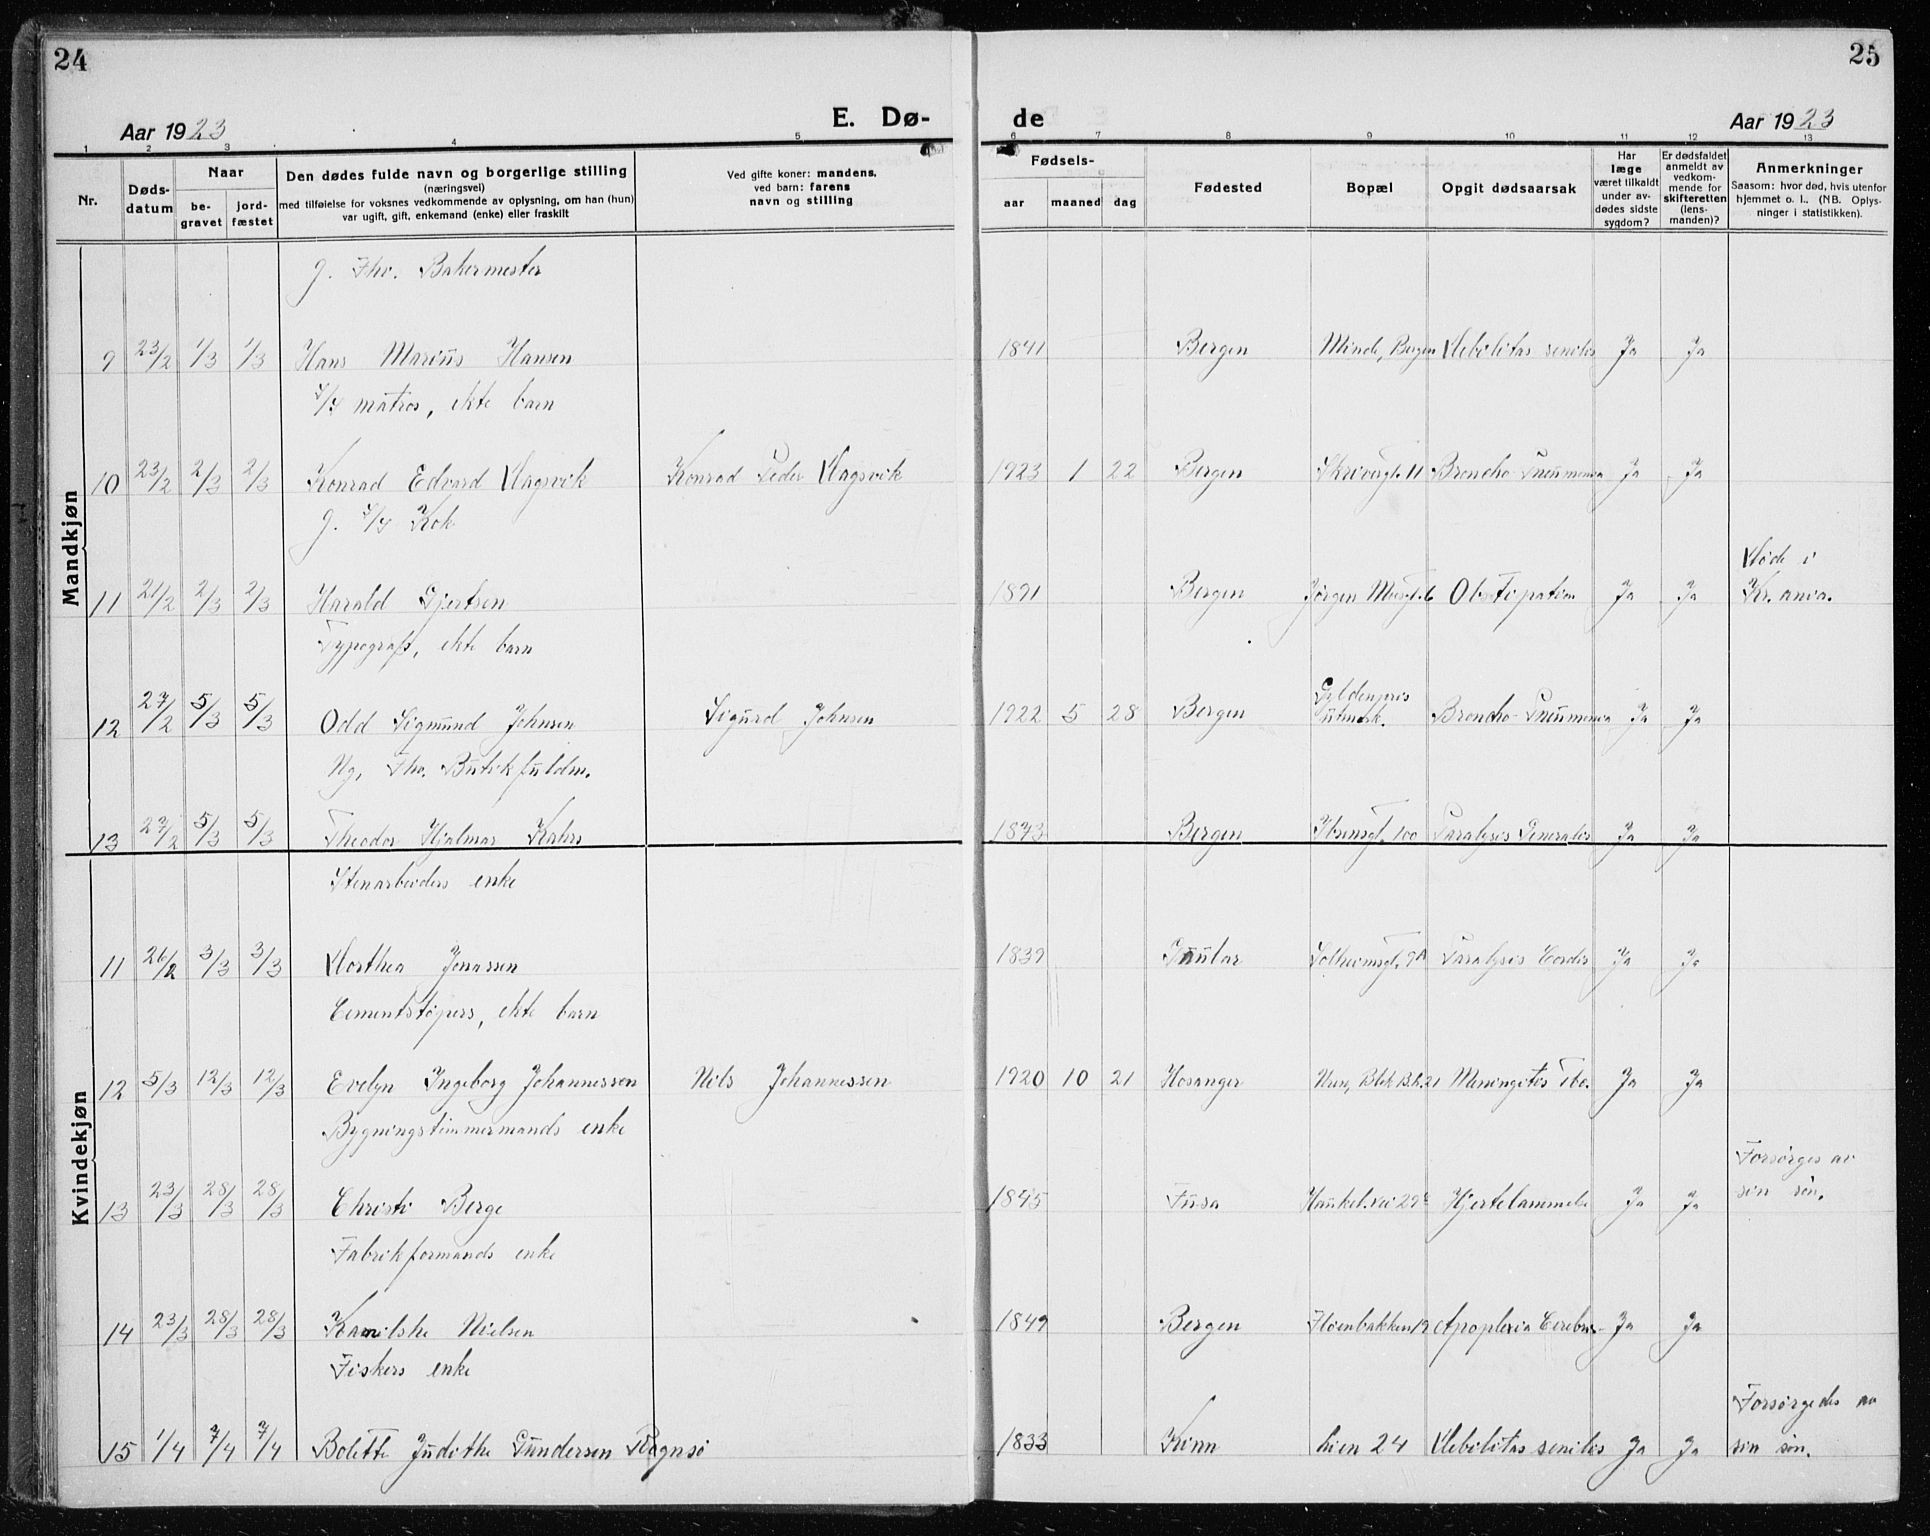 24
25
Aar 1923
E. Dø-
de
Aar 1923
1 2 3 4 5 6 7 8 9 10 11 12 13
Nr.
Døds-
datum
Naar
be-
gravet
jord-
fæstet
Den dødes fulde navn og borgerlige stilling
(næringsvei)
med tilføielse for voksnes vedkommende av oplysning, om han (hun)
var ugift, gift, enkemand (enke) eller fraskilt
Ved gifte koner: mandens,
ved barn: farens
navn og stilling
Fødsels-
aar maaned dag
Fødested
Bopæl
Opgit dødsaarsak
Har
læge
været tilkaldt
under av-
dødes sidste
sygdom?
Er dødsfaldet
anmeldt av
vedkom-
mende for
skifteretten
(lens-
manden)?
Anmerkninger
Saasom: hvor død, hvis utenfor
hjemmet o. l.. (NB. Oplys-
ninger i statistikken).
Mandkjøn
g. Fhv. Bakermester
9 23/2 1/3 1/3 Hans Marius Hansen 1841 Bergen Minde, Bergen Debilitas senilis Ja Ja
matros, ekte barn
10 23/2 2/3 2/3 Konrad Edvard Dagsvik Konrad Peder Dagsvik 1923 1 22 Bergen Skrivergt. 11 Broncho-Pneumonia Ja Ja
g. Kok
11 21/2 2/3 2/3 Harald Gjertsen 1891 Bergen Obstipation Ja Ja Døde i
Kr.ania.
Typografs, ekte barn
12 27/2 5/3 5/3 Odd Sigmund Johnsen Sigurd Johnsen 1922 5 28 Bergen Gyldenpris
utmark. Broncho-Pneumonia Ja Ja
Ng. Fhv. Butikfuldm.
13 27/2 5/3 5/3 Theodor Hjalmar Kahrs 1873 Bergen Ibsensgt. 100 Paralysis Generalis Ja Ja
Kvindekjøn
Stenarbeiders enke
11 26/2 3/3 3/3 Dorthea Jonassen 1839 Gaular Solheimsgt. 9A Paralysis Cordis Ja Ja
Cementstøpers, ekte barn
12 5/3 12/3 12/3 Evelyn Ingeborg Johannessen Nils Johannessen 1920 10 21 Hosanger Meningitis Tbc. Ja Ja
Bygningstømmermands enke
13 23/3 28/3 28/3 Christi Berge 1845 Fusa Haukel.vei 29 Hjertelammelse Ja Ja Forsørges av
sin søn.
Fabrikformands enke
14 23/3 28/3 28/3 Nielsen 1849 Bergen Fløenbakken 19 Apoplexia Cerebri Ja Ja
Fiskers enke
15 1/4 7/4 7/4 Bolette Judithe Gundersen Rognsø 1833 Kinn Lien 24 Debilitas senilis Ja Ja Forsørgedes av
sin søn.